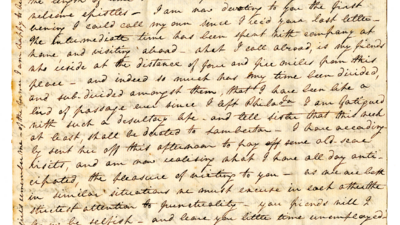 the length of
welcome epistles - I am now devoting to you the first
evening I could call my own since I rec'd your last letter -
The intermediate time has been spent with company at
home and visiting abroad - what I call abroad is my friends
who reside at the distance of four and five miles from this
place - and indeed so much has my time been divided
and sub-divided amongst them, that I have been like a
bird of passage ever since I left Philada I am fatigued
with such a desultory life - and tell sister that this week
at least, shall be devoted to Lamberton - I have according
ly sent her off this afternoon to pay off some old scores
visits, and am now realising what I have all day anti-
cipated, the pleasure of writing to you - as we are both
in similar situations we must excuse in each other the
strictest attention to punctuality - your friends will I
to be selfish - and leave you little time unemployed